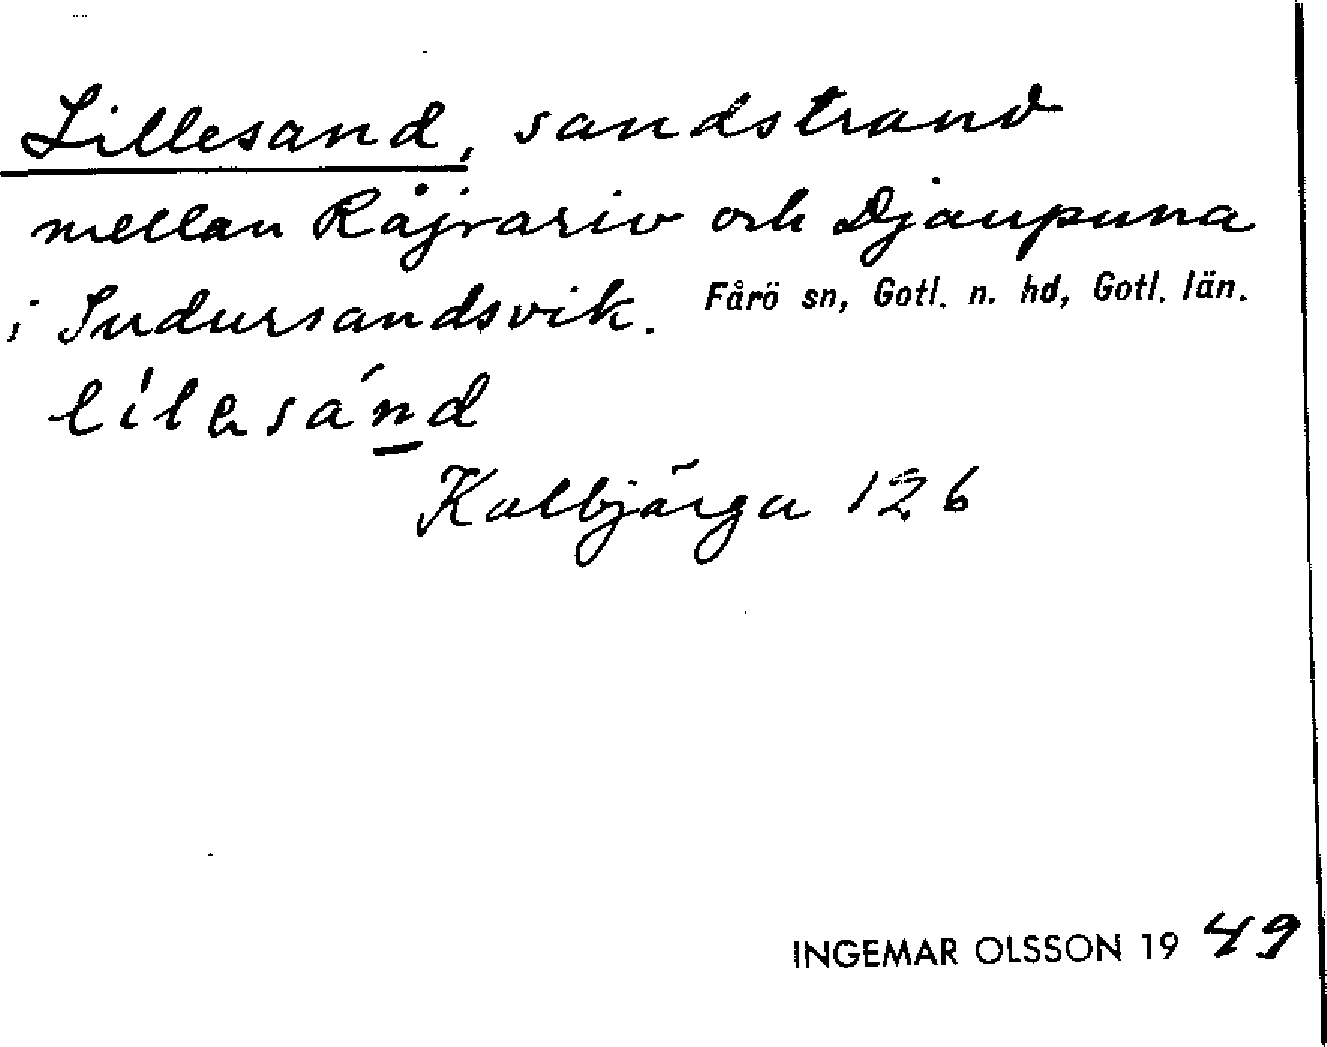 Lillesand, sandstrand
mellan Råjvariv och Djaupuna
i Sudursandsvik. Fårö sn, Gotl. n. hd, Gotl. län.
Kalbjärga 126
INGEMAR OLSSON 1949